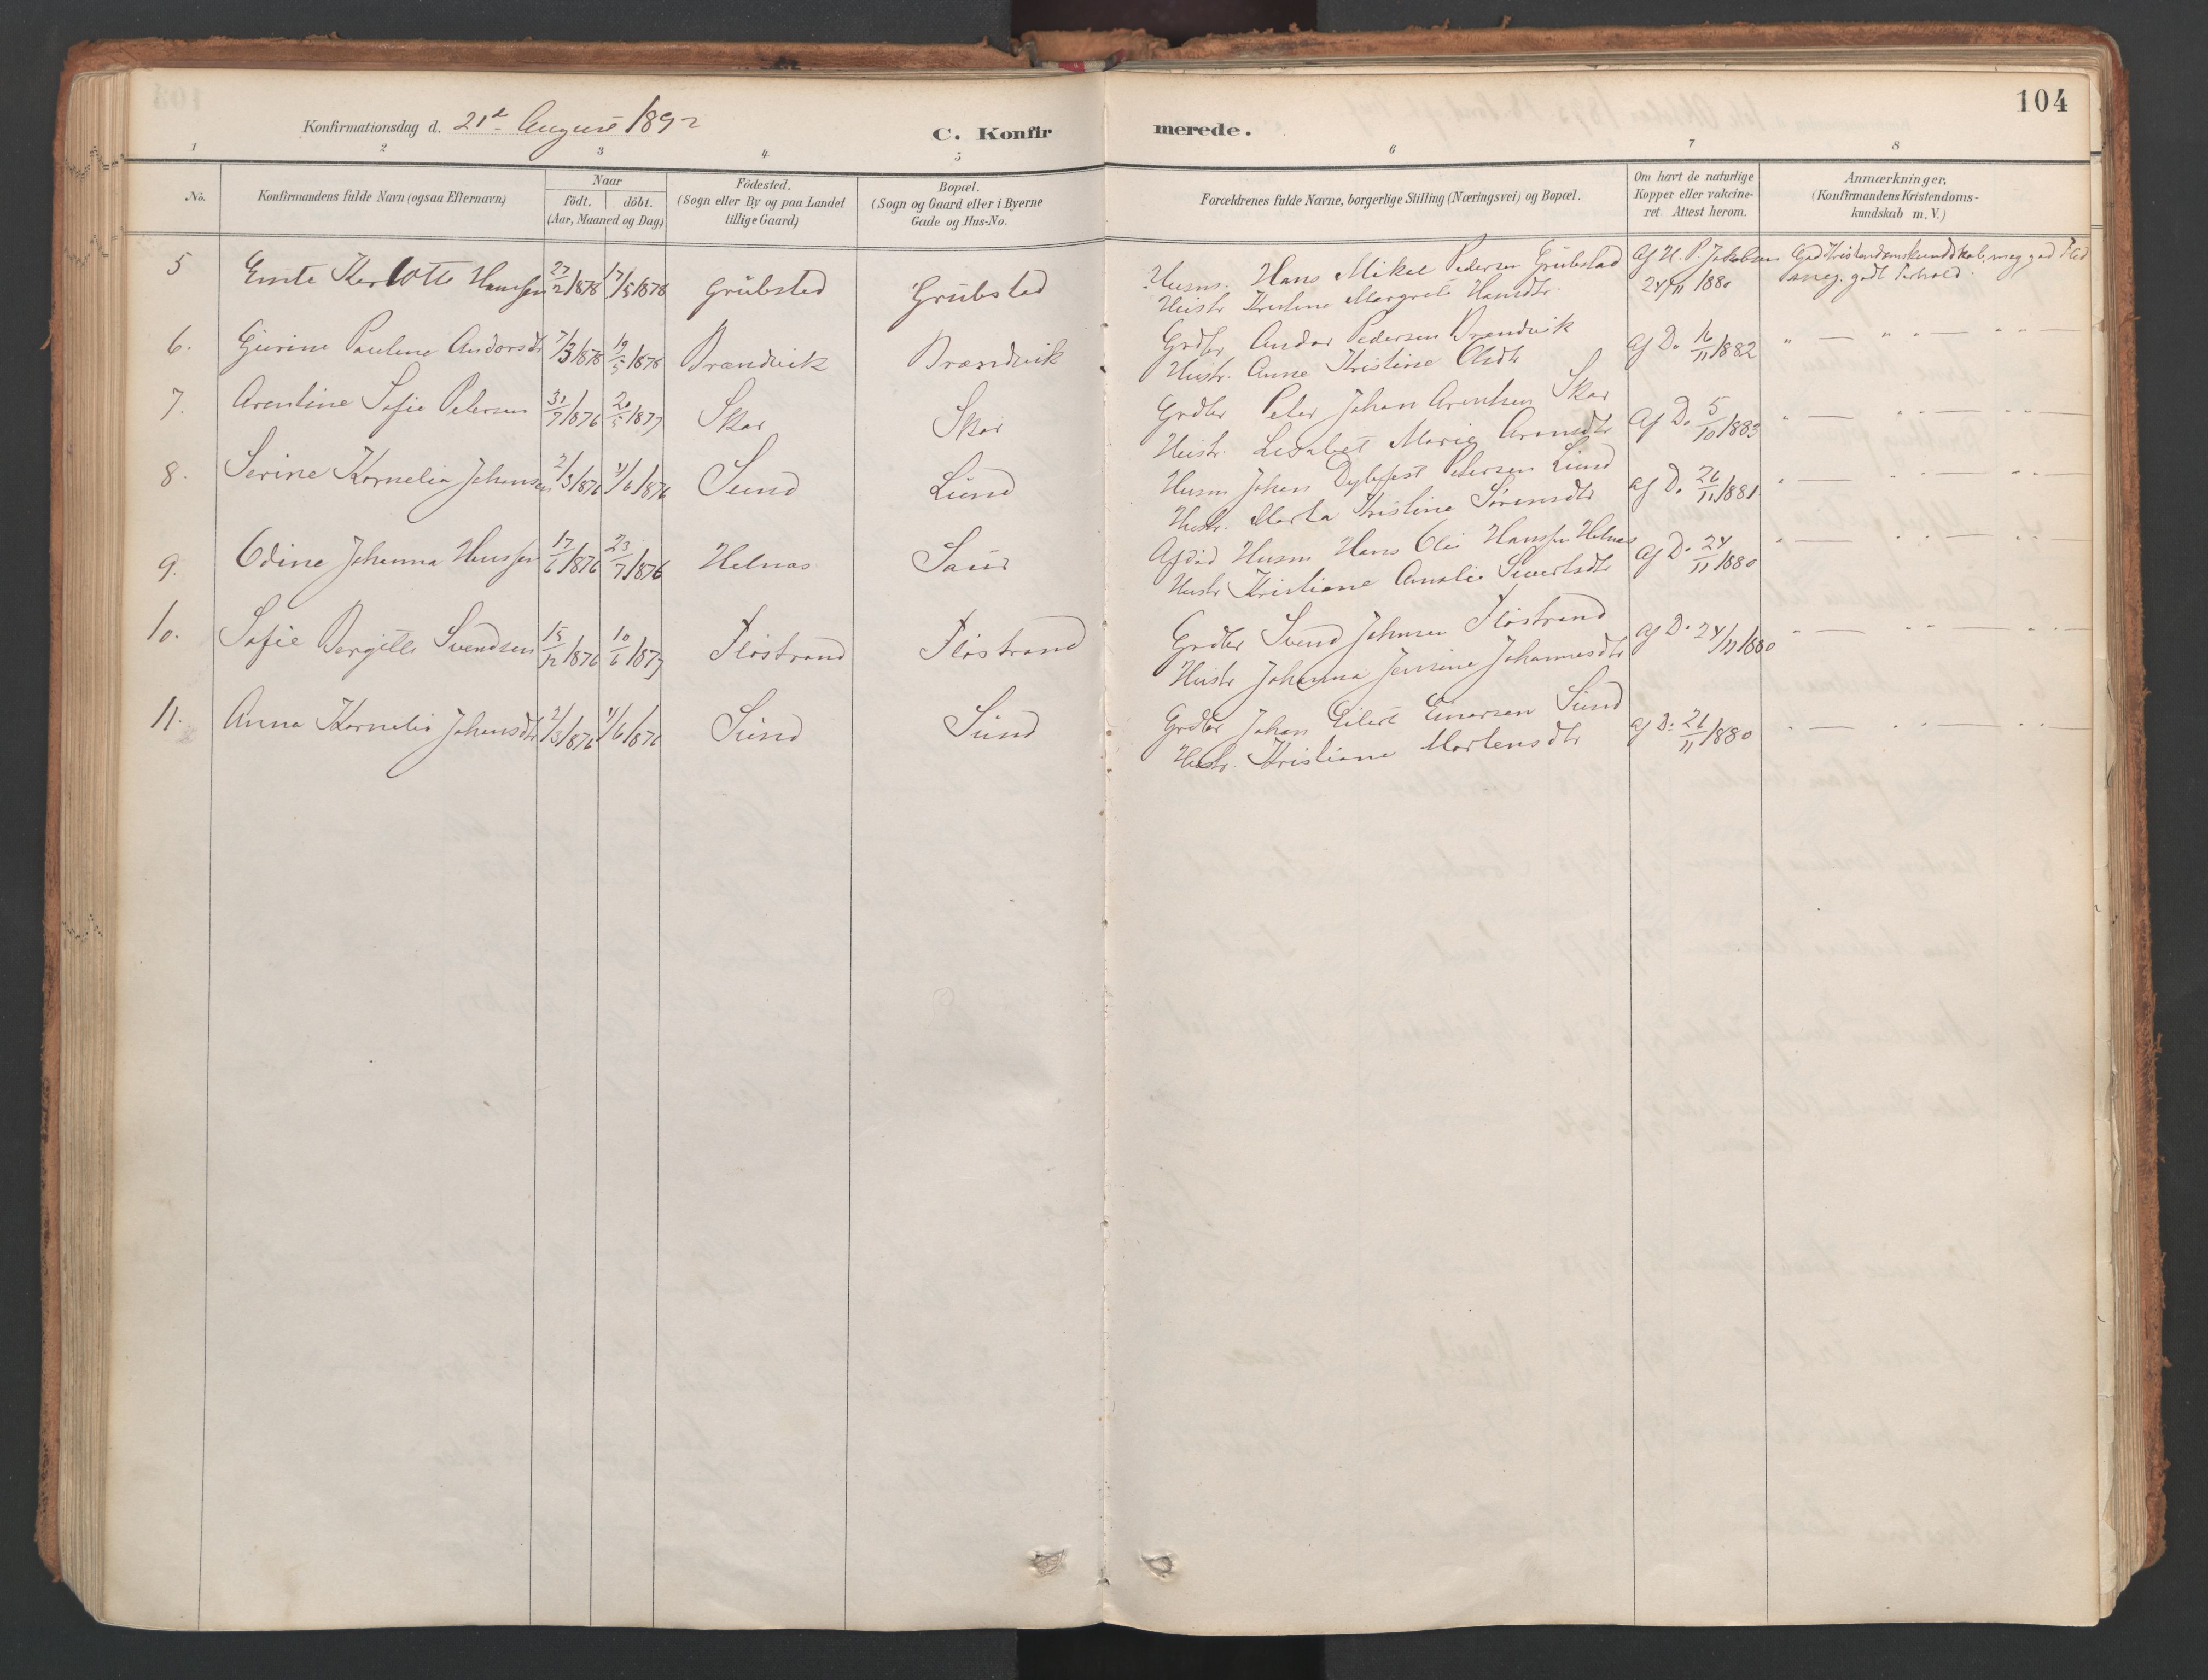 104
Konfirmationsdag d. 21de August 1892
C. Konfirmerede.
1 2 3 4 5 6 7 8
No.
Konfirmandens fulde Navn (ogsaa Efternavn)
Naar
födt. döbt.
(Aar, Maaned og Dag)
Födested.
(Sogn eller By og paa Landet
tillige Gaard)
Bopæl.
(Sogn og Gaard eller i Byerne
Gade og Hus-No.
Forældrenes fulde Navne, borgerlige Stilling (Næringsvei) og Bopæl.
Om havt de naturlige
Kopper eller vakcine-
ret. Attest herom.
Anmærkninger,
(Konfirmandens Kristendoms-
kundskab m. V.)
5 Karlotte Hansen 27/2 1878 17/5 1878 Grübstad Grübstad Husm. Hans Mikel Pedersen Grübstad Af H. P. Jakobsen God Kristendomskundskab, meg. god Flid
Hustr Margrete Hansdtr. 24/11 1880 og meg. godt Forhold.
6. Gurine Pauline Andorsdtr 7/3 1878 19/5 1878 Brændvik Brændvik Grdbr Andor Pedersen Brændvik Af Do 16/11 1882 " — " " — " " —
Hustr. Anne Kristine Olsdtr
7. Arentine Sofie Petersen 31/7 1876 20/5 1877 Skar Skar Grdbr Peter Johan Arentsen Skar Af Do 5/10 1883 " — " " — " " —
Hustr. Marie Arensdtr
8. Serine Kornelia Johansen 2/3 1876 11/6 1876 Sund Lund Husm Johan Dyblfest Petersen Lund Af Do 26/11 1881 " — " — " " —
Hustr. Marta Kristine Sørensdtr
9. Odine Johanna Hansen 17/6 1876 23/7 1876 Helnæs Saur Afdød Husm Hans Olai Hansen Helnæs Af Do 24/11 1880 " — " " — " " —
Hustr Kristiane Amalie Sivertsdtr
10. Sofie Bergitte Svendsen 15/12 1876 10/6 1877 Flostrand Flostrand Grdbr Svend Johnsen Flostrand Af Do 24/11 1880 " — " " — " " —
Hustr Johanna Jensine Johannesdtr
11. Anna Kornelia Johansdtr 2/3 1876 11/6 1876 Sund Sund Grdbr Johan Eilert Einersen Sund Af Do 26/11 1880 " — " " — " " —
Hustr. Kristiane Mortensdtr